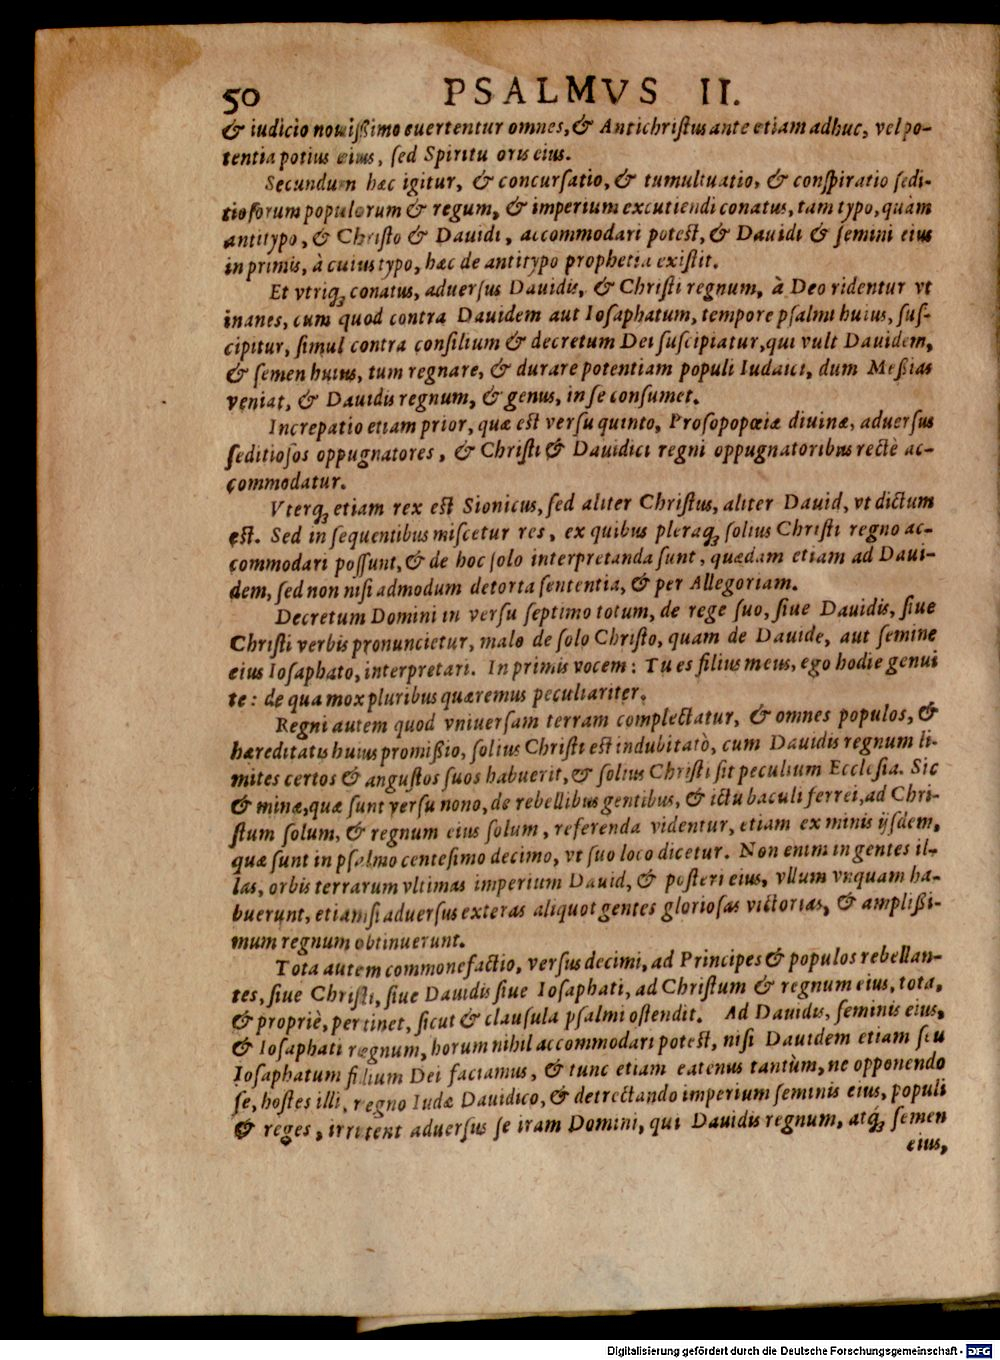 50 PSALMVS II.
& iudicio nouißimo euertentur omnes, & Antichriſtus ante etiam adhuc, vel po-
tentia potius eius, ſed Spiritu oris eius.
Secundum hæc igitur, & concurſatio, & tumultuatio, & conſpiratio ſedi-
tioſorum populorum & regum, & imperium excutiendi conatus, tam typo, quàm
antitypo, & Chriſto & Dauidi, accommodari poteſt, & Dauidi & ſemini eius
in primis, à cuius typo, hæc de antitypo prophetia exiſtit.
Et vtriq́ꝫ conatus, aduerſus Dauidis, & Chriſti regnum, à Deo ridentur vt
inanes, cum quod contra Dauidem aut Ioſaphatum, tempore pſalmi huius, ſuſ-
cipitur, ſimul contra conſilium & decretum Dei ſuſcipiatur, qui vult Dauidem,
& ſemen huius, tum regnare, & durare potentiam populi Iudaici, dum Meßias
veniat, & Dauidis regnum, & genus, in ſe conſumet.
Increpatio etiam prior, quæ eſt verſu quinto, Proſopopœiæ diuinæ, aduerſus
ſeditioſos oppugnatores, & Chriſti & Dauidici regni oppugnatoribus rectè ac-
commodatur.
Vterqꝫ etiam rex eſt Sionicus, ſed aliter Chriſtus, aliter Dauid, vt dictum
eſt. Sed in ſequentibus miſcetur res, ex quibus pleraqꝫ ſolius Chriſti regno ac-
commodari poſſunt, & de hoc ſolo interpretanda ſunt, quædam etiam ad Daui-
dem, ſed non niſi admodum detorta ſententia, & per Allegoriam.
Decretum Domini in verſu ſeptimo totum, de rege ſuo, ſiue Dauidis, ſiue
Chriſti verbis pronuncietur, malo de ſolo Chriſto, quam de Dauide, aut ſemine
eius Ioſaphato, interpretari. In primis vocem: Tu es filius meus, ego hodie genui
te: de qua mox pluribus quæremus peculiariter.
Regni autem quod vniuerſam terram complectatur, & omnes populos, &
hæreditatis huius promißio, ſolius Chriſti eſt indubitatò, cum Dauidis regnum li-
mites certos & anguſtos ſuos habuerit, & ſolius Chriſti ſit peculium Eccleſia. Sic
& minæ, quæ ſunt verſu nono, de rebellibus gentibus, & ictu baculi ferrei, ad Chri-
ſtum ſolum, & regnum eius ſolum, referenda videntur, etiam ex minis ijſdem,
quæ ſunt in pſalmo centeſimo decimo, vt ſuo loco dicetur. Non enim in gentes il-
las, orbis terrarum vltimas imperium Dauid, & poſteri eius, vllum vnquam ha-
buerunt, etiamſi aduerſus exteras aliquot gentes glorioſas victorias, & amplißi-
mum regnum obtinuerunt.
Tota autem commonefactio, verſus decimi, ad Principes & populos rebellan-
tes, ſiue Chriſti, ſiue Dauidis ſiue Ioſaphati, ad Chriſtum & regnum eius, tota,
& propriè, pertinet, ſicut & clauſula pſalmi oſtendit. Ad Dauidis, ſeminis eius,
& Ioſaphati regnum, horum nihil accommodari poteſt, niſi Dauidem etiam ſeu
Ioſaphatum filium Dei faciamus, & tunc etiam eatenus tantùm, ne opponendo
ſe, hoſtes illi, regno Iudæ Dauidico, & detrectando imperium ſeminis eius, populi
& reges, irritent aduerſus ſe iram Domini, qui Dauidis regnum, atq́ꝫ ſemen
eius,
Digitalisierung gefördert durch die Deutsche Forschungsgemeinschaft - DFG